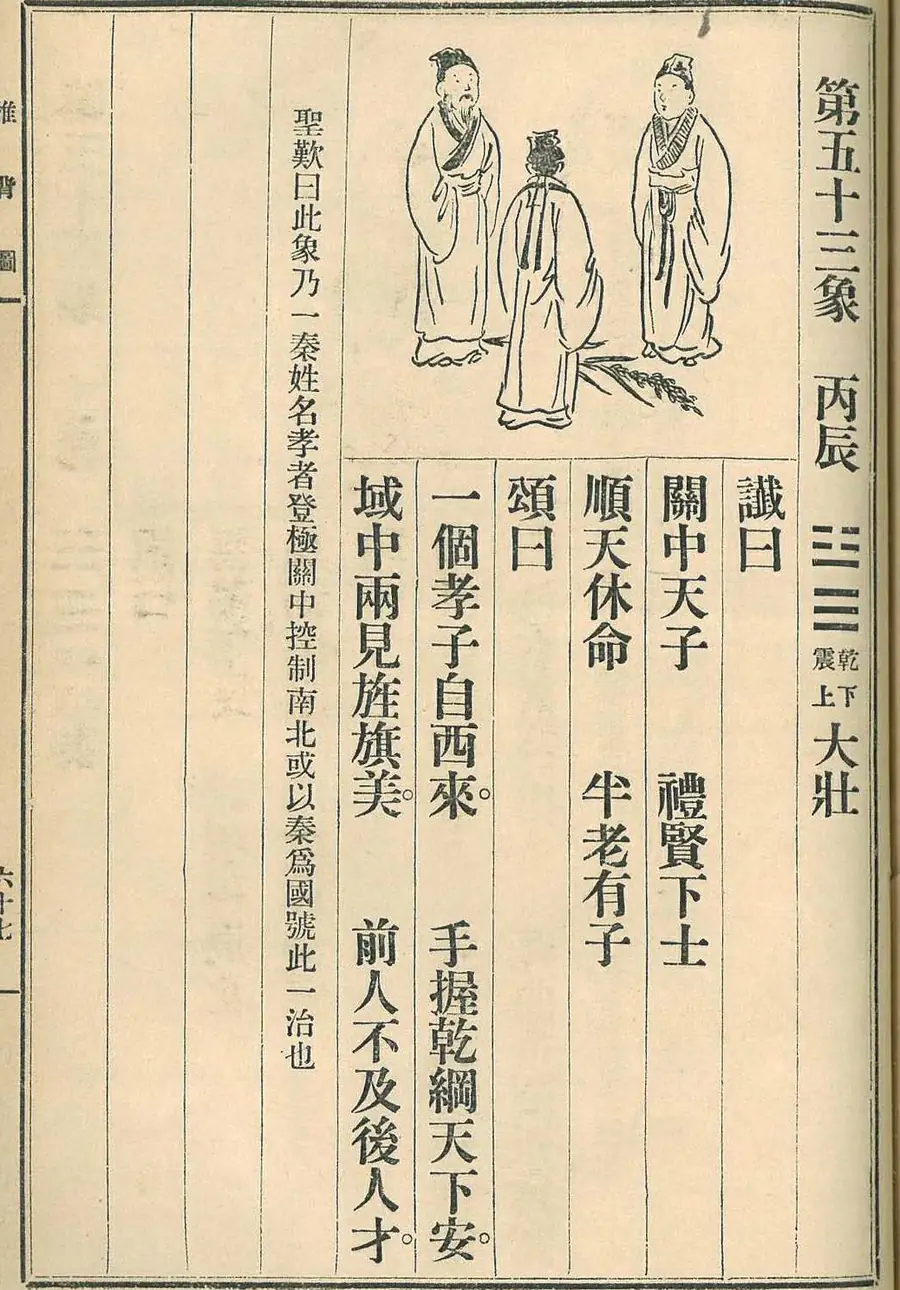 第五十三象 丙辰 乾下震上 大壯
讖曰
關中天子 禮賢下士
順天休命 半老有子
頌曰
一個孝子自西來。 手握乾綱天下安。
域中兩見旌旗美。 前人不及後人才。
聖歎曰此象乃一秦姓名孝者登極關中控制南北或以秦爲國號此一治也
推背圖
六十七